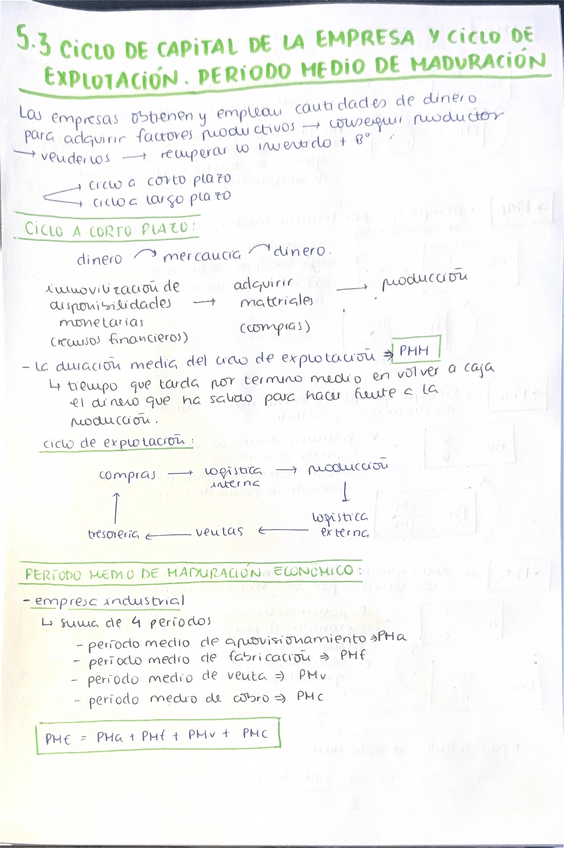 5.3 CICLO DE CAPITAL DE LA EMPRESA Y CICLO DE
EXPLOTACIÓN. PERIODO MEDIO DE MADURACIÓN
Las empresas obtienen y emplean cantidades de dinero
para adquirir factores productivos → conseguir productor
→ venderlos → recuperar lo invertido + Bº
→ ciclo a corto plazo
→ ciclo a largo plazo
CICLO A CORTO PLAZO:
dinero → mercancia → dinero.
inmovilización de disponibilidades monetarias (recursos financieros) → adquirir materiales (compras) → producción
- la duración media del ciclo de explotación ⇒ PMM
↳ tiempo que tarda por termino medio en volver a caja
el dinero que ha salido para hacer frente a la
producción.
ciclo de explotación:
compras → logistica interna → producción
↓
logistica externa
tesoreria ← ventas ←
↑
PERÍODO MEDIO DE MADURACIÓN ECONOMICO:
- empresa industrial
↳ suma de 4 períodos
- período medio de aprovisionamiento ⇒ PMa
- período medio de fabricación ⇒ PMf
- período medio de venta ⇒ PMv
- período medio de cobro ⇒ PMc
PME = PMa + PMf + PMv + PMC